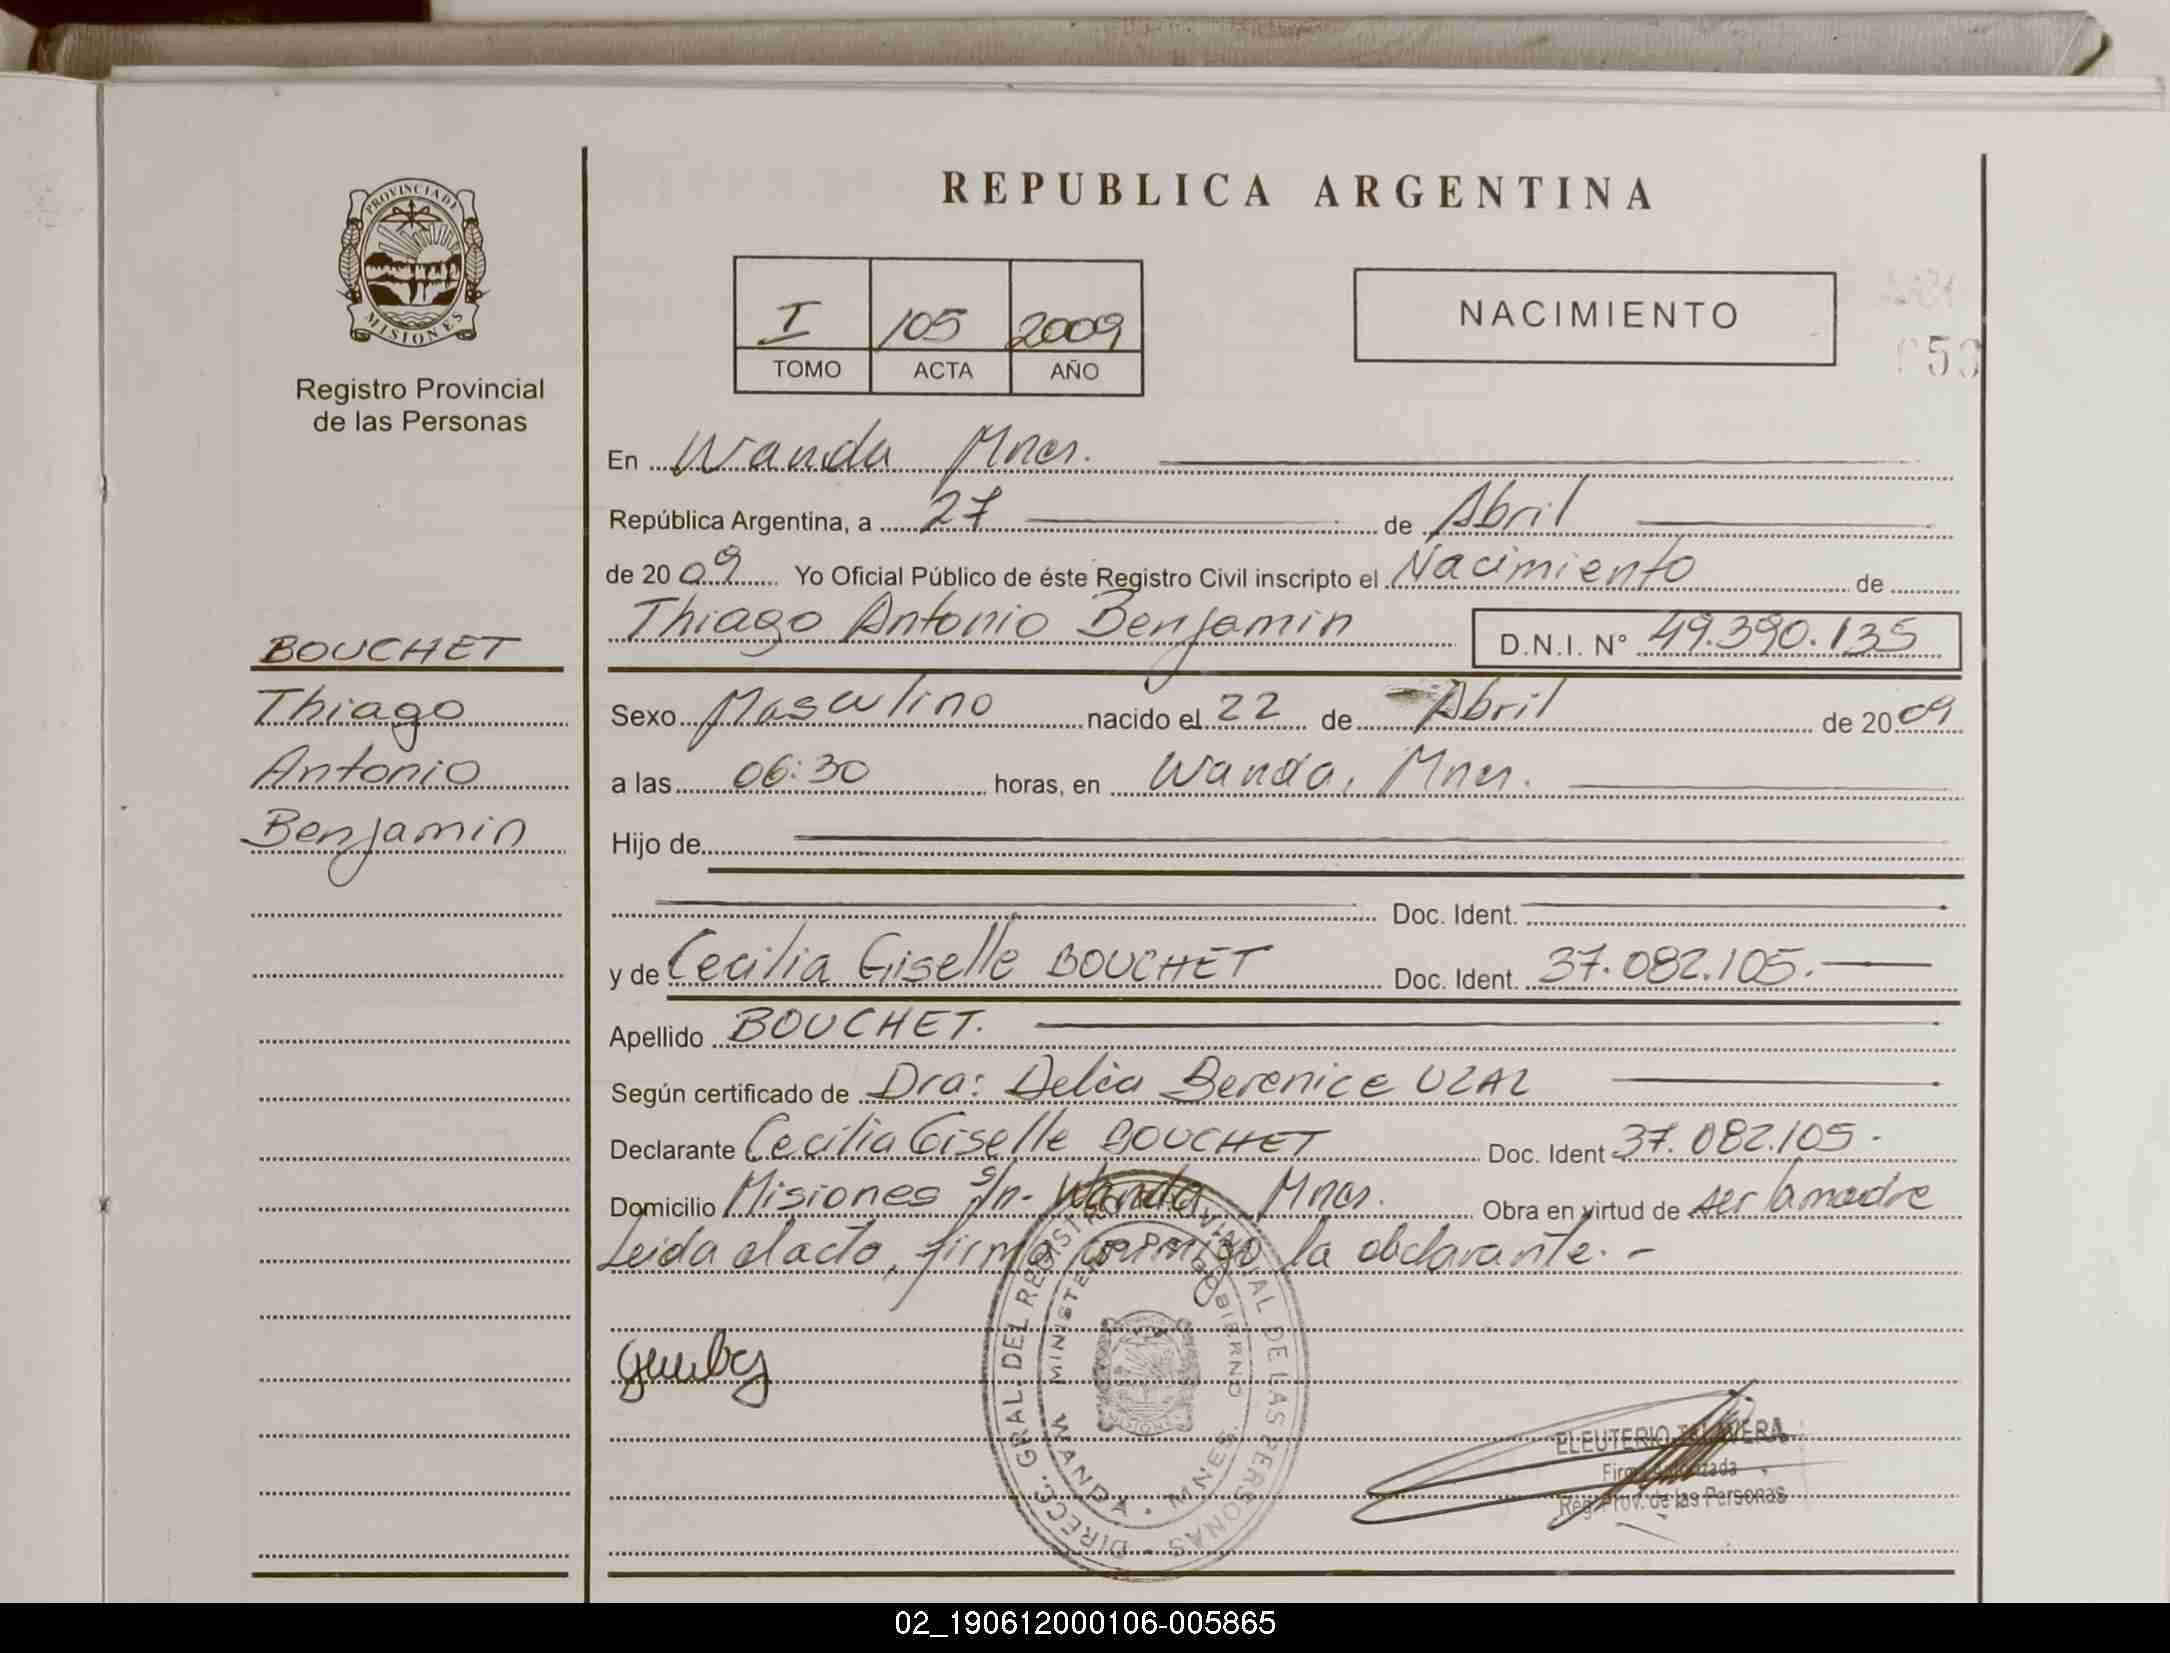 PROVINCIA DE
MISIONES
Registro Provincial
de las Personas
REPUBLICA ARGENTINA
I 105 2009
TOMO ACTA AÑO
NACIMIENTO
En Wanda Mnes.
República Argentina, a 27 de Abril
de 2009 Yo Oficial Público de éste Registro Civil inscripto el Nacimiento de
Thiago Antonio Benjamin D.N.I. N° 49.390.135
BOUCHET
Thiago
Antonio
Benjamin
Sexo Masculino nacido el 22 de Abril de 2009
a las 06:30 horas, en Wanda, Mnes.
Hijo de
Doc. Ident.
y de Cecilia Giselle BOUCHET Doc. Ident. 37.082.105.
Apellido BOUCHET.
Según certificado de Dra: Delia Berenice UZAL
Declarante Cecilia Giselle BOUCHET Doc. Ident 37.082.105.
Domicilio Misiones s/n. Wanda Mnes. Obra en virtud de ser la madre
Leida el acta, firma conmigo la declarante. -
DIRECC. GRAL. DEL REGISTRO PROVINCIAL DE LAS PERSONAS
MINISTERIO DE GOBIERNO
WANDA - MNES.
ELEUTERIO TALAVERA
Firma Autorizada
Reg. Prov. de las Personas
02_190612000106-005865